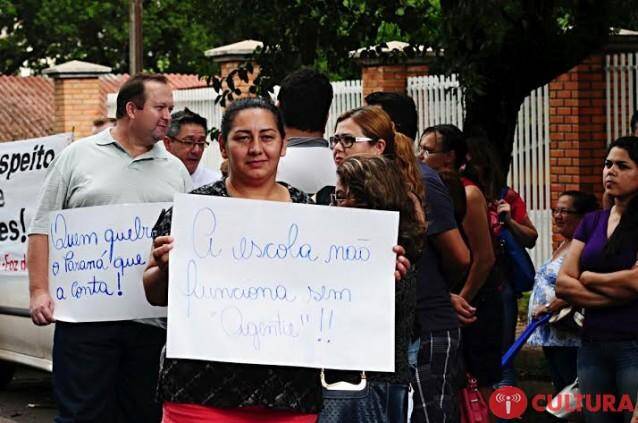 speito
e
es!
-Foz d
Quem quebr
o Paraná que
a conta!
A escola não
funciona sem
"Agente"!!
CULTURA